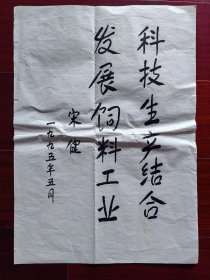 科技生产结合
发展饲料工业
宋健
一九九五年五月